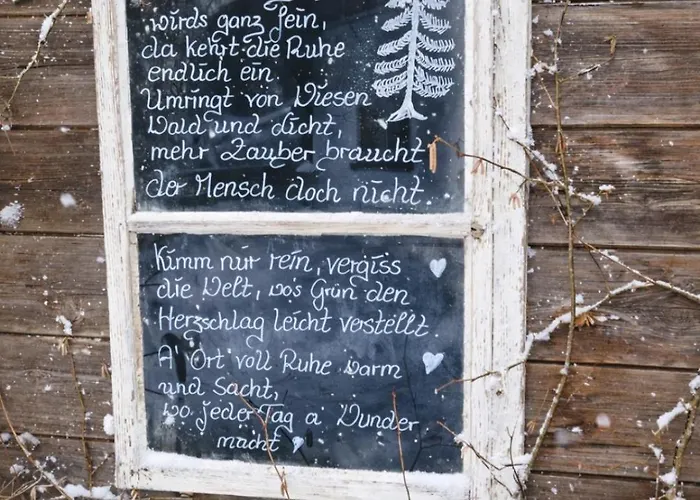 wirds ganz fein,
da kehrt die Ruhe
endlich ein.
Umringt von Wiesen
Wald und Licht,
mehr Zauber braucht
der Mensch doch nicht.
Kimm nur rein, vergiss
die Welt, wo's Grün den
Herzschlag leicht verstellt.
A' Ort voll Ruhe warm
und Sacht,
wo jeder Tag a' Wunder
macht